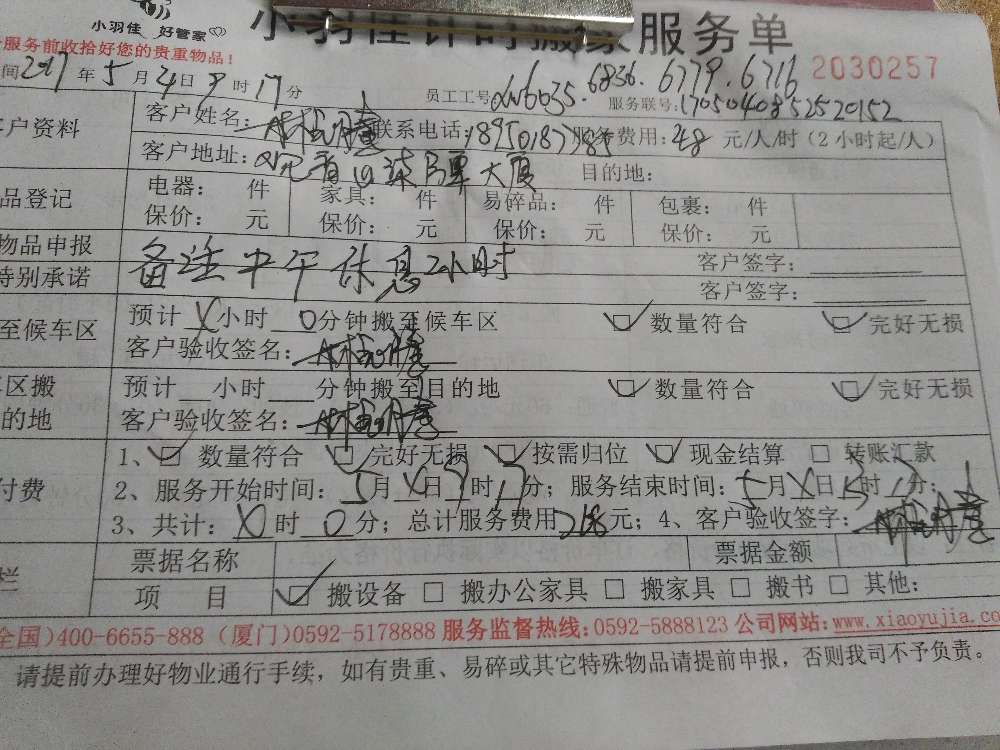 小羽佳 好管家
小羽佳计时搬家服务单
服务前收拾好您的贵重物品!
2030257
间2017年5月21日9时17分 员工工号 6836.6779.6716
服务联号:1705040852520152
客户资料 客户姓名: 联系电话: 服务费用:248元/人/时(2小时起/人)
客户地址: 大厦 目的地:
品登记 电器: 件 家具: 件 易碎品: 件 包裹: 件
保价: 元 保价: 元 保价: 元 保价: 元
物品申报 备注中午休息2小时 客户签字:
特别承诺 客户签字:
至候车区 预计 小时 0分钟搬至候车区 数量符合 完好无损
客户验收签名:
区搬 预计 小时 分钟搬至目的地 数量符合 完好无损
的地 客户验收签名:
1、 数量符合 完好无损 按需归位 现金结算 转账汇款
付费 2、服务开始时间:5月 日9时 分;服务结束时间:5月 日 时 分;
3、共计: 时0分;总计服务费用 元;4、客户验收签字:
栏 票据名称 票据金额
项 目 搬设备 搬办公家具 搬家具 搬书 其他:
全国)400-6655-888 (厦门)0592-5178888 服务监督热线:0592-5888123 公司网站:www.xiaoyujia.co
请提前办理好物业通行手续,如有贵重、易碎或其它特殊物品请提前申报,否则我司不予负责。